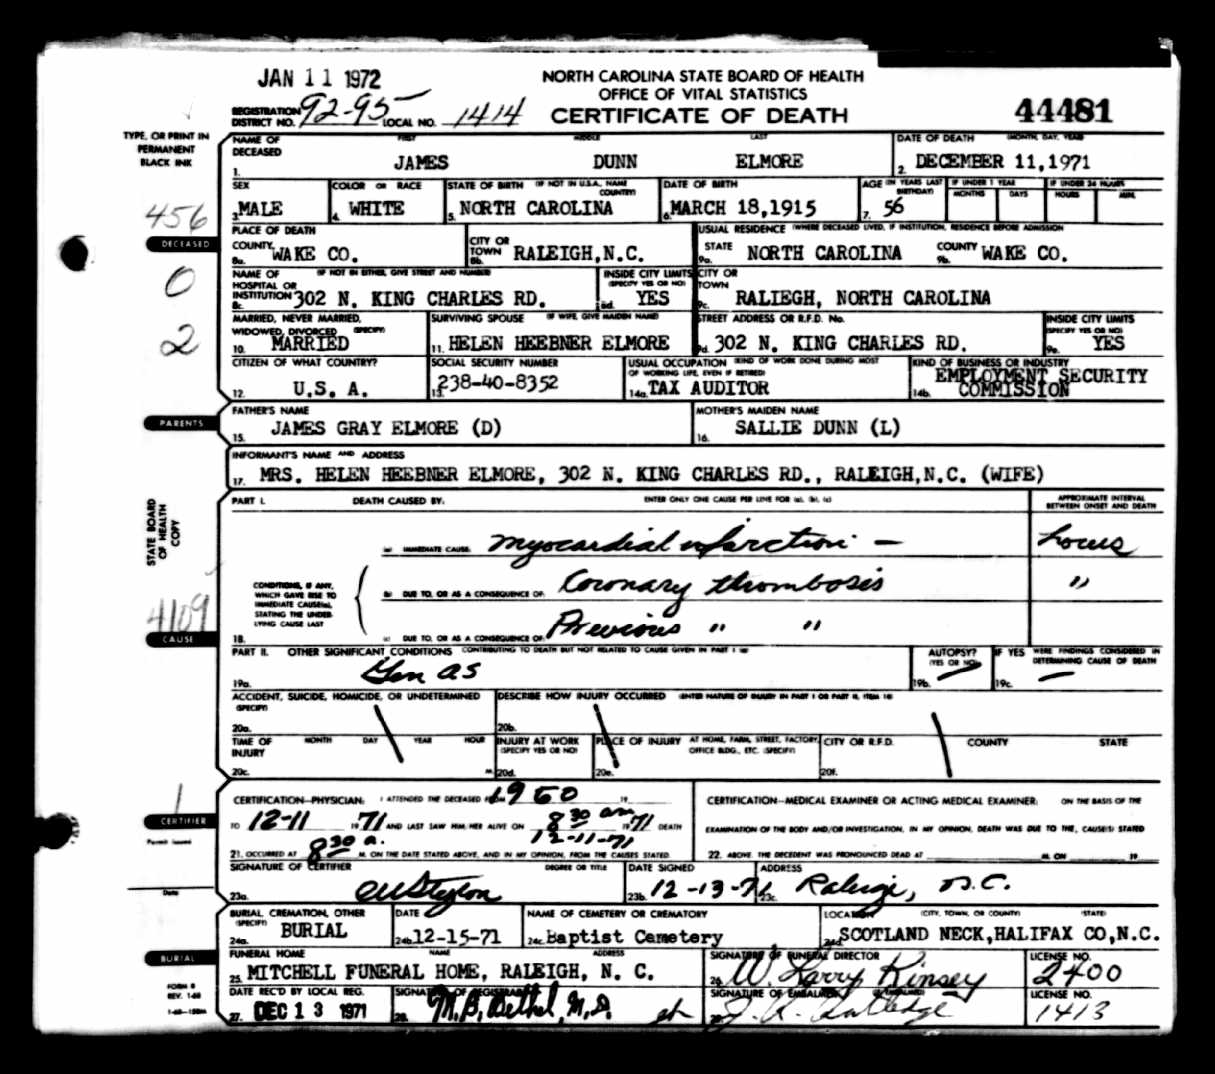 JAN 11 1972
NORTH CAROLINA STATE BOARD OF HEALTH
OFFICE OF VITAL STATISTICS
REGISTRATION DISTRICT NO. 92-95 LOCAL NO. 1414 CERTIFICATE OF DEATH 44481
TYPE, OR PRINT IN
PERMANENT
BLACK INK
NAME OF DECEASED FIRST MIDDLE LAST DATE OF DEATH (MONTH, DAY, YEAR)
1. JAMES DUNN ELMORE 2. DECEMBER 11,1971
SEX COLOR OR RACE STATE OF BIRTH (IF NOT IN U.S.A., NAME COUNTRY) DATE OF BIRTH AGE (IN YEARS LAST BIRTHDAY) IF UNDER 1 YEAR MONTHS DAYS IF UNDER 24 HOURS HOURS MIN.
3. MALE 4. WHITE 5. NORTH CAROLINA 6. MARCH 18,1915 7. 56
456
DECEASED
0
2
PLACE OF DEATH USUAL RESIDENCE (WHERE DECEASED LIVED, IF INSTITUTION, RESIDENCE BEFORE ADMISSION)
COUNTY 8a. WAKE CO. CITY OR TOWN 8b. RALEIGH,N.C. STATE 9a. NORTH CAROLINA COUNTY 9b. WAKE CO.
NAME OF HOSPITAL OR INSTITUTION (IF NOT IN EITHER, GIVE STREET AND NUMBER) INSIDE CITY LIMITS (SPECIFY YES OR NO) CITY OR TOWN
8c. 302 N. KING CHARLES RD. 8d. YES 9c. RALIEGH, NORTH CAROLINA
MARRIED, NEVER MARRIED, WIDOWED, DIVORCED (SPECIFY) SURVIVING SPOUSE (IF WIFE, GIVE MAIDEN NAME) STREET ADDRESS OR R.F.D. No. INSIDE CITY LIMITS (SPECIFY YES OR NO)
10. MARRIED 11. HELEN HEEBNER ELMORE 9d. 302 N. KING CHARLES RD. 9e. YES
CITIZEN OF WHAT COUNTRY? SOCIAL SECURITY NUMBER USUAL OCCUPATION (KIND OF WORK DONE DURING MOST OF WORKING LIFE, EVEN IF RETIRED) KIND OF BUSINESS OR INDUSTRY
12. U.S. A. 13. 238-40-8352 14a. TAX AUDITOR 14b. EMPLOYMENT SECURITY COMMISSION
PARENTS
FATHER'S NAME MOTHER'S MAIDEN NAME
15. JAMES GRAY ELMORE (D) 16. SALLIE DUNN (L)
INFORMANT'S NAME AND ADDRESS
17. MRS. HELEN HEEBNER ELMORE, 302 N. KING CHARLES RD., RALEIGH,N.C. (WIFE)
STATE BOARD
OF HEALTH
COPY
PART I. DEATH CAUSED BY: ENTER ONLY ONE CAUSE PER LINE FOR (a), (b), (c) APPROXIMATE INTERVAL BETWEEN ONSET AND DEATH
(a) IMMEDIATE CAUSE: Myocardial infarction - hours
CONDITIONS, IF ANY, WHICH GAVE RISE TO IMMEDIATE CAUSE(a), STATING THE UNDERLYING CAUSE LAST
(b) DUE TO, OR AS A CONSEQUENCE OF: Coronary thrombosis "
4109
CAUSE
18. (c) DUE TO, OR AS A CONSEQUENCE OF: Previous " "
PART II. OTHER SIGNIFICANT CONDITIONS CONTRIBUTING TO DEATH BUT NOT RELATED TO CAUSE GIVEN IN PART I (a) AUTOPSY? (YES OR NO) IF YES WERE FINDINGS CONSIDERED IN DETERMINING CAUSE OF DEATH
19a. Gen AS 19b. — 19c. —
ACCIDENT, SUICIDE, HOMICIDE, OR UNDETERMINED (SPECIFY) DESCRIBE HOW INJURY OCCURRED (ENTER NATURE OF INJURY IN PART I OR PART II, ITEM 18)
20a. 20b.
TIME OF INJURY MONTH DAY YEAR HOUR INJURY AT WORK (SPECIFY YES OR NO) PLACE OF INJURY AT HOME, FARM, STREET, FACTORY, OFFICE BLDG., ETC. (SPECIFY) CITY OR R.F.D. COUNTY STATE
20c. M. 20d. 20e. 20f.
CERTIFICATION—PHYSICIAN: I ATTENDED THE DECEASED FROM 1960 19 CERTIFICATION—MEDICAL EXAMINER OR ACTING MEDICAL EXAMINER: ON THE BASIS OF THE
CERTIFIER
TO 12-11 1971 AND LAST SAW HIM/HER ALIVE ON 8 30 am 12-11-71 1971 DEATH EXAMINATION OF THE BODY AND/OR INVESTIGATION, IN MY OPINION, DEATH WAS DUE TO THE, CAUSE(S) STATED
Permit Issued
21. OCCURRED AT 8 30 a. M. ON THE DATE STATED ABOVE, AND IN MY OPINION, FROM THE CAUSES STATED. 22. ABOVE. THE DECEDENT WAS PRONOUNCED DEAD AT M. ON 19
SIGNATURE OF CERTIFIER DEGREE OR TITLE DATE SIGNED ADDRESS
Date
23a. 23b. 12-13-71 23c. Raleigh, N.C.
BURIAL, CREMATION, OTHER (SPECIFY) DATE NAME OF CEMETERY OR CREMATORY LOCATION (CITY, TOWN, OR COUNTY) (STATE)
24a. BURIAL 24b. 12-15-71 24c. Baptist Cemetery 24d. SCOTLAND NECK,HALIFAX CO,N.C.
BURIAL
FUNERAL HOME NAME ADDRESS SIGNATURE OF FUNERAL DIRECTOR LICENSE NO.
25. MITCHELL FUNERAL HOME, RALEIGH, N. C. 26. W. Larry Kinsey 2400
FORM 8
REV. 1-68
DATE REC'D BY LOCAL REG. SIGNATURE OF REGISTRAR SIGNATURE OF EMBALMER LICENSE NO.
27. DEC 13 1971 28. M.B. Bethel, M.D. 29. 1413